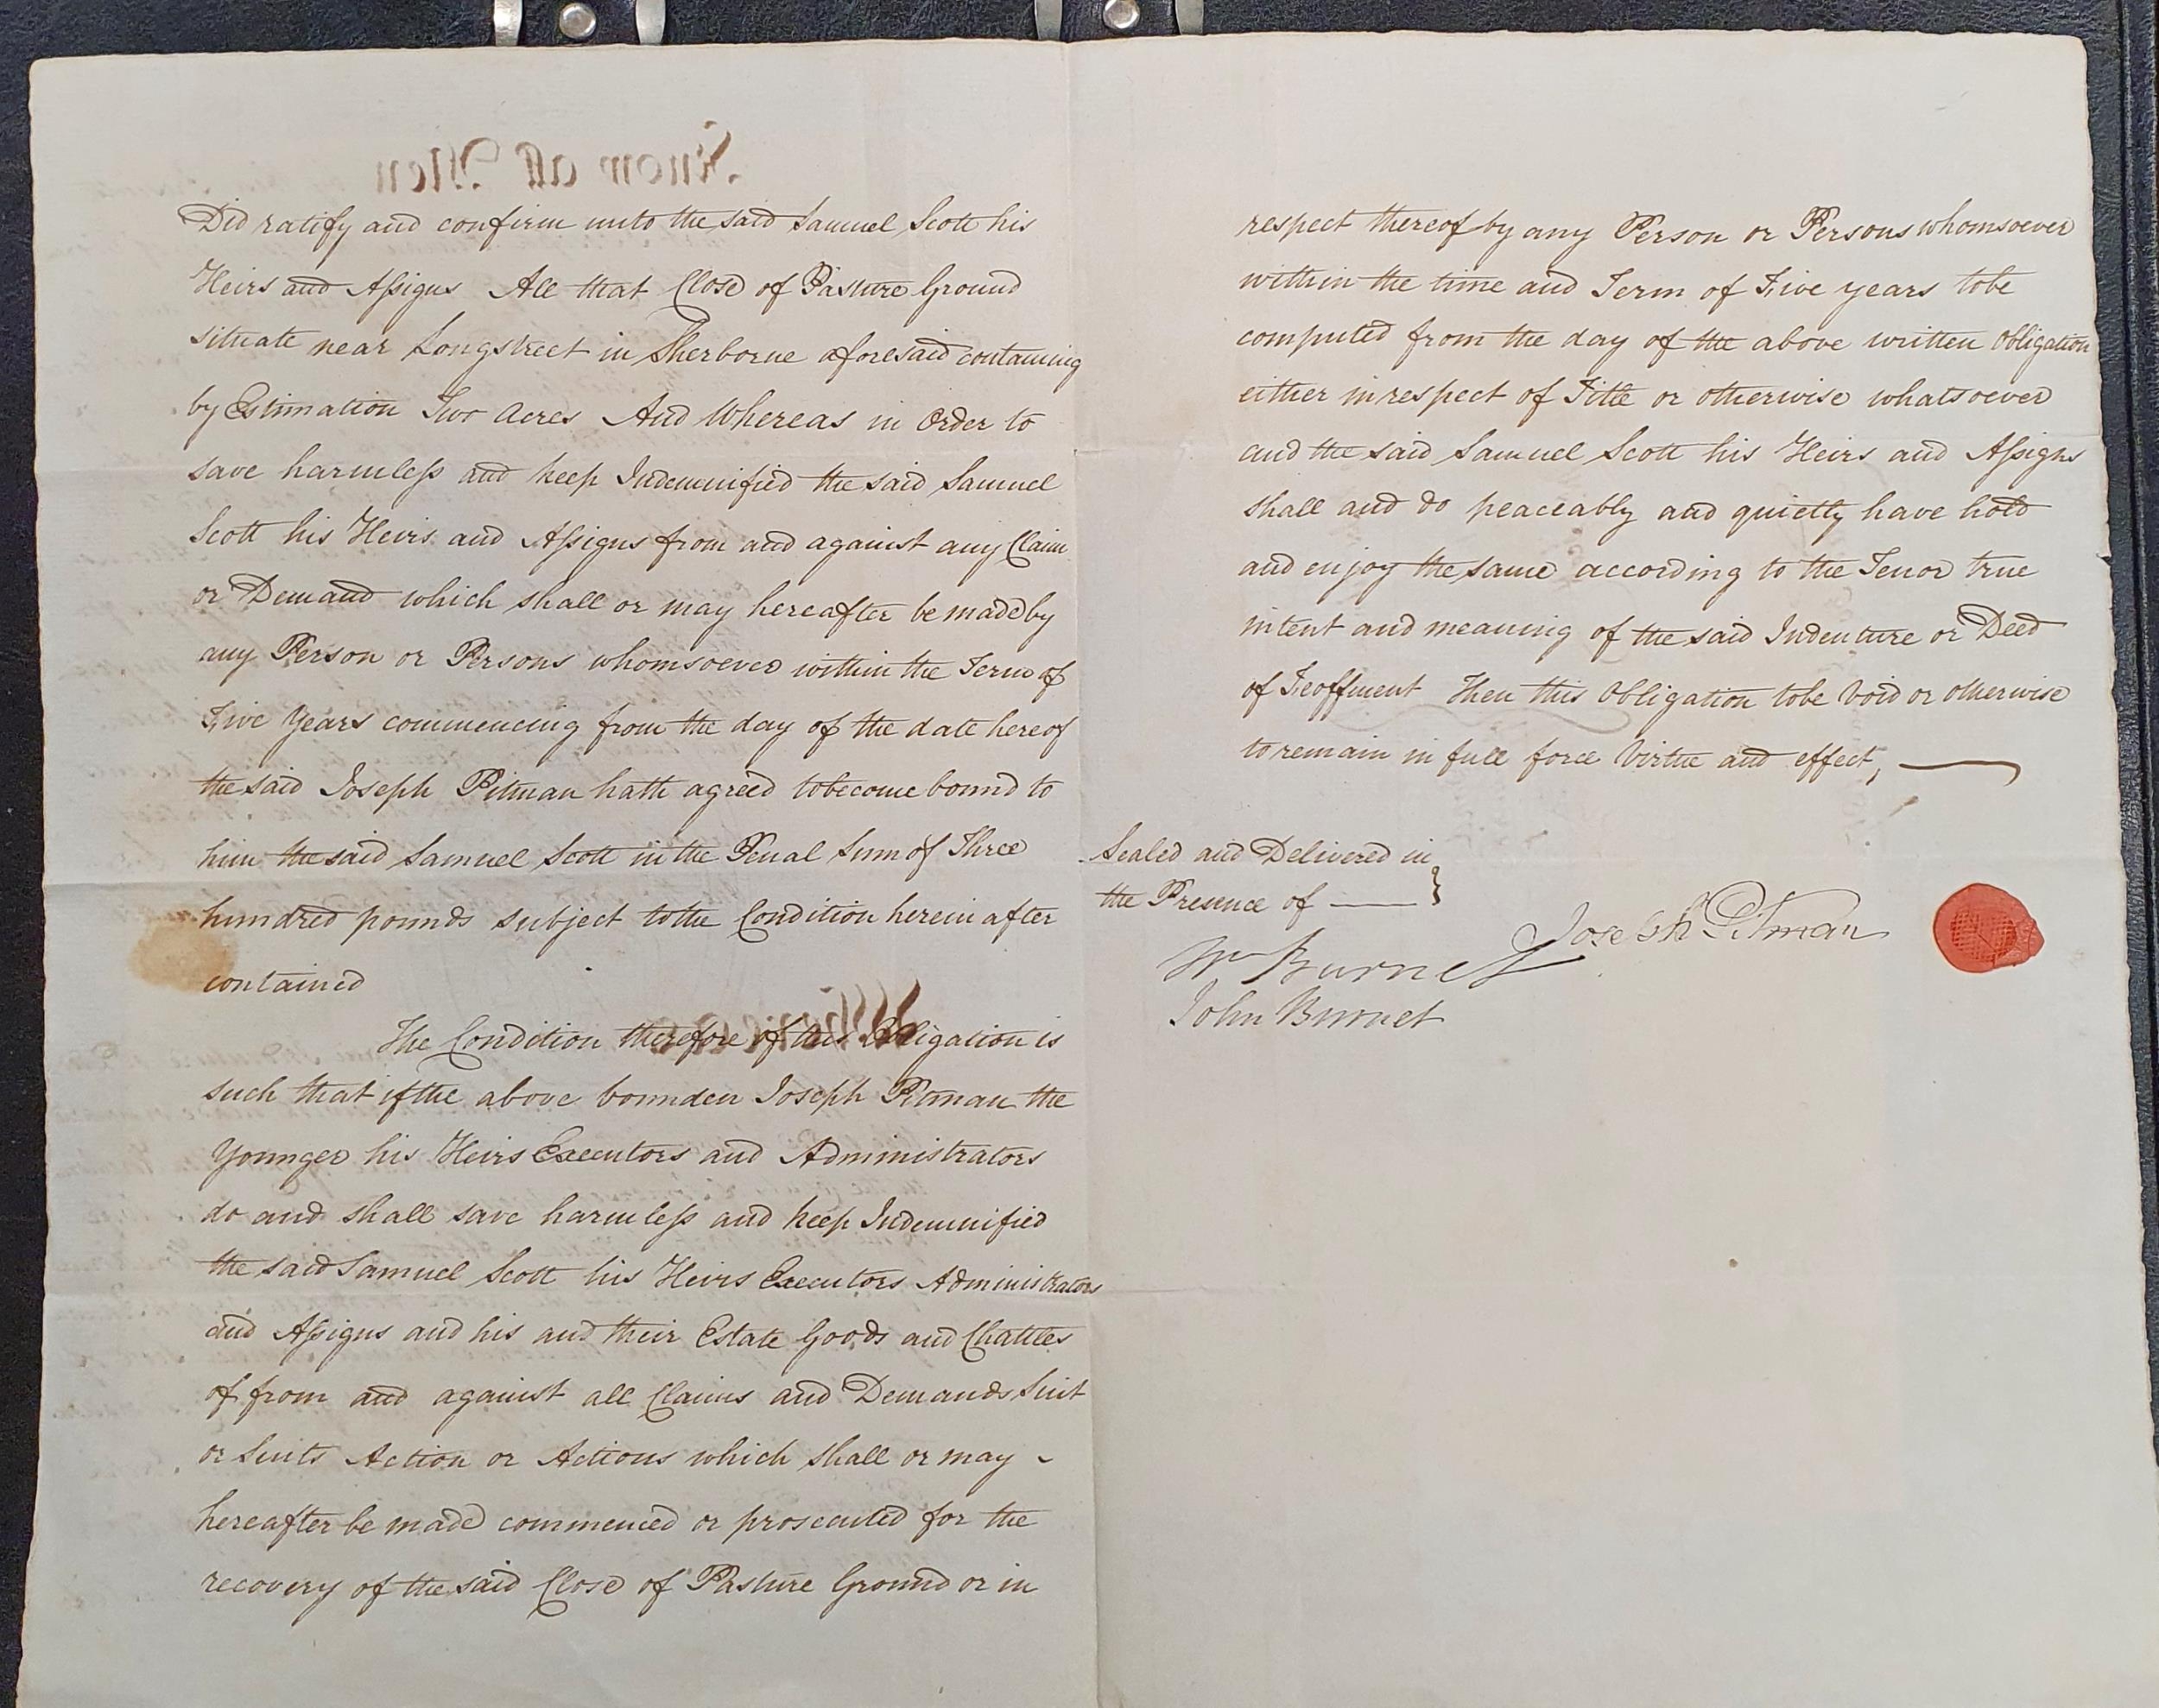 Know all Men
Did ratify and confirm unto the said Samuel Scott his
Heirs and Assigns All that Close of Pasture Ground
situate near Longstreet in Sherborne aforesaid containing
by Estimation Two Acres And Whereas in Order to
save harmless and keep Indemnified the said Samuel
Scott his Heirs and Assigns from and against any Claim
or Demand which shall or may hereafter be made by
any Person or Persons whomsoever within the Term of
Five Years commencing from the day of the date hereof
the said Joseph Pitman hath agreed to become bound to
him the said Samuel Scott in the Penal Sum of Three
hundred pounds subject to the Condition herein after
contained
Whereas
The Condition therefore of this Obligation is
such that if the above bounden Joseph Pitman the
Younger his Heirs Executors and Administrators
do and shall save harmless and keep Indemnified
the said Samuel Scott his Heirs Executors Administrators
and Assigns and his and their Estate Goods and Chattles
of from and against all Claims and Demands Suit
or Suits Action or Actions which shall or may
hereafter be made commenced or prosecuted for the
recovery of the said Close of Pasture Ground or in
respect thereof by any Person or Persons whomsoever
within the time and Term of Five years to be
computed from the day of the above written Obligation
either in respect of Title or otherwise whatsoever
and the said Samuel Scott his Heirs and Assigns
shall and do peaceably and quietly have hold
and enjoy the same according to the Tenor true
intent and meaning of the said Indenture or Deed
of Feoffment Then this Obligation to be Void or otherwise
to remain in full force Virtue and effect,
Sealed and Delivered in
the Presence of
Joseph Pitman
Wm Burnet
John Burnet